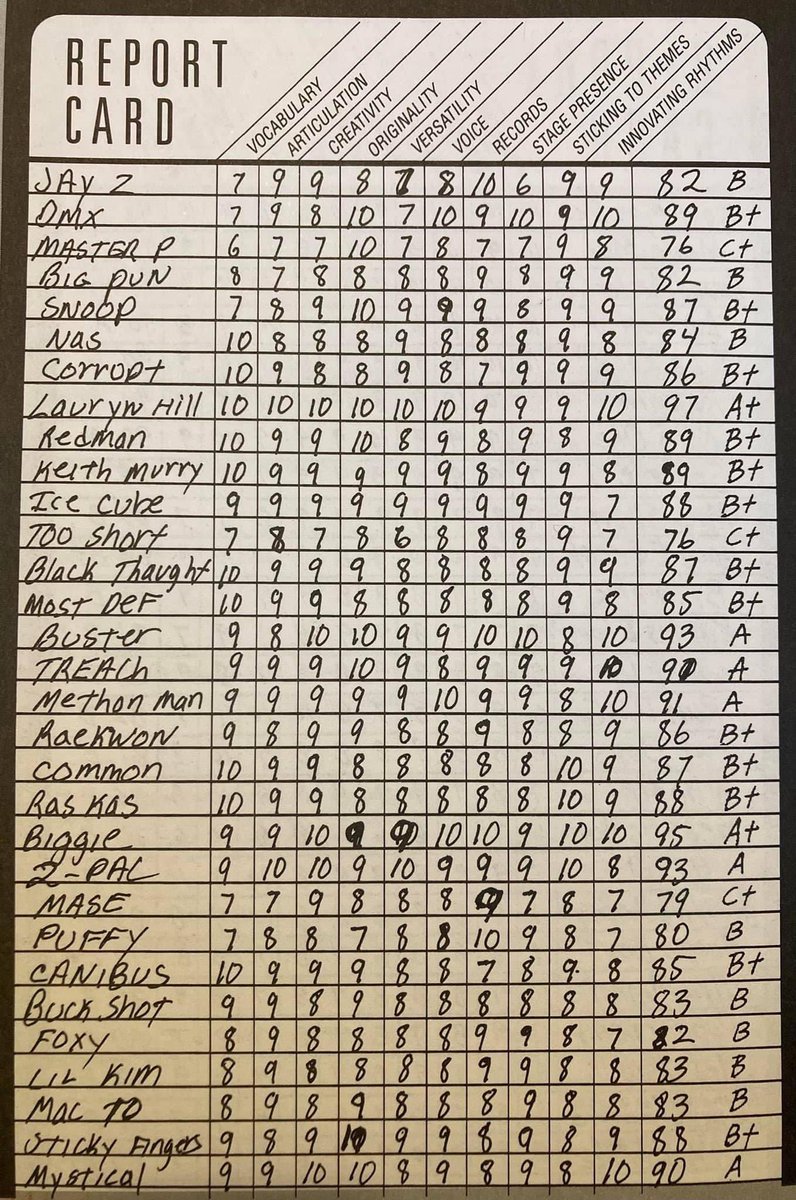 REPORT
CARD
VOCABULARY
ARTICULATION
CREATIVITY
ORIGINALITY
VERSATILITY
VOICE
RECORDS
STAGE PRESENCE
STICKING TO THEMES
INNOVATING RHYTHMS
JAY Z 7 9 9 8 7 8 10 6 9 9 82 B
DMX 7 9 8 10 7 10 9 10 9 10 89 B+
MASTER P 6 7 7 10 7 8 7 7 9 8 76 C+
BIG PUN 8 7 8 8 8 8 9 8 9 9 82 B
SNOOP 7 8 9 10 9 9 9 8 9 9 87 B+
Nas 10 8 8 8 9 8 8 8 9 8 84 B
Corrupt 10 9 8 8 9 8 7 9 9 9 86 B+
Lauryn Hill 10 10 10 10 10 10 9 9 9 10 97 A+
Redman 10 9 9 10 8 9 8 9 8 9 89 B+
Keith Murry 10 9 9 9 9 9 8 9 9 8 89 B+
Ice Cube 9 9 9 9 9 9 9 9 9 7 88 B+
Too Short 7 8 7 8 6 8 8 8 9 7 76 C+
Black Thaught 10 9 9 9 8 8 8 8 9 9 87 B+
Most Def 10 9 9 8 8 8 8 8 9 8 85 B+
Buster 9 8 10 10 9 9 10 10 8 10 93 A
TREACh 9 9 9 10 9 8 9 9 9 10 91 A
Methon Man 9 9 9 9 9 10 9 9 8 10 91 A
Raekwon 9 8 9 9 8 8 9 8 8 9 86 B+
Common 10 9 9 8 8 8 8 8 10 9 87 B+
Ras Kas 10 9 9 8 8 8 8 8 10 9 88 B+
Biggie 9 9 10 9 9 10 10 9 10 10 95 A+
2-PAC 9 10 10 9 10 9 9 9 10 8 93 A
MASE 7 7 9 8 8 8 9 7 8 7 79 C+
PUFFY 7 8 8 7 8 8 10 9 8 7 80 B
CANIBUS 10 9 9 9 8 8 7 8 9 8 85 B+
Buck Shot 9 9 8 9 8 8 8 8 8 8 83 B
FOXY 8 9 8 8 8 8 9 9 8 7 82 B
LIL KIM 8 9 8 8 8 8 9 9 8 8 83 B
Mac TO 8 9 8 9 8 8 8 9 8 8 83 B
Sticky Fingers 9 8 9 10 9 9 8 9 8 9 88 B+
Mystical 9 9 10 10 8 9 8 9 8 10 90 A